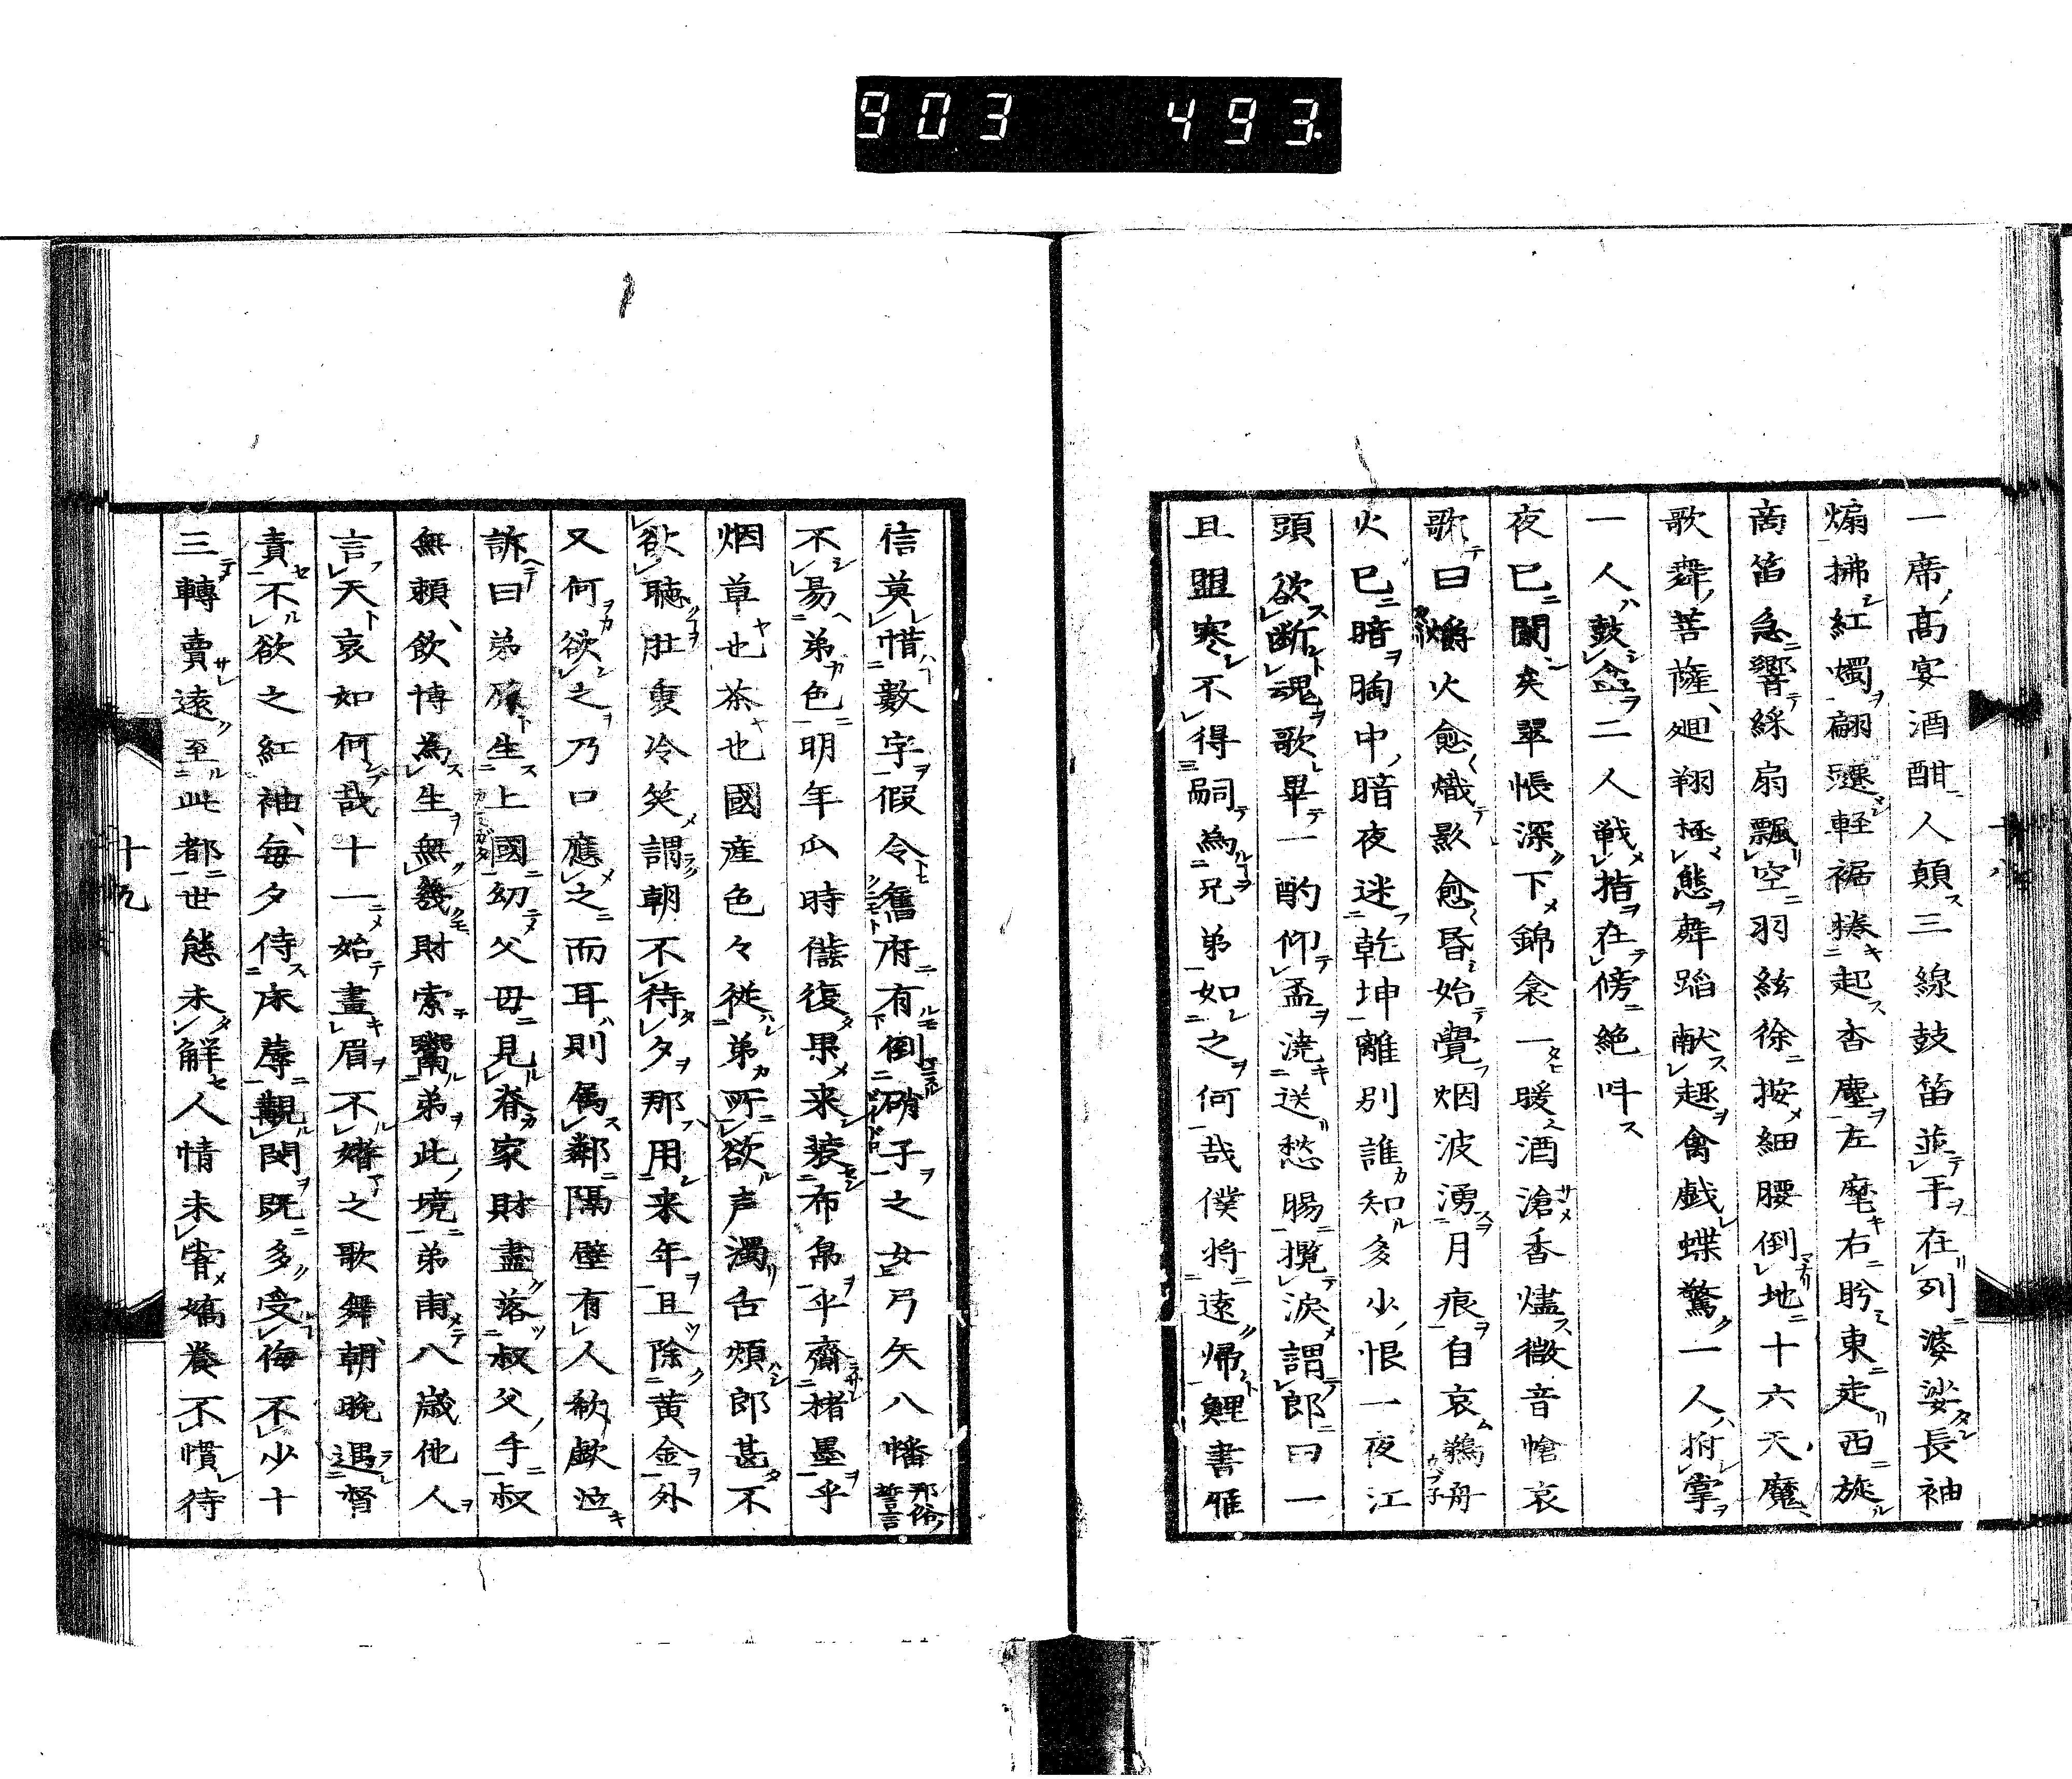 903 493.
一席高宴酒酣人顛三線鼓笛並手在列婆娑長袖
煽拂紅燭翩䙴軽裾捲起杳塵左麾右盻東走西旋
高笛急響綵扇飄空羽絃徐按細腰倒地十六天魔
歌舞菩薩廻翔極態舞蹈献趣禽戯蝶驚一人拊掌
一人鼓盆二人戦指在傍絶呌
夜已闌矣翠帳深下錦衾一暖酒滄香燼微音愴哀
歌曰爝火愈熾影愈昏始覺烟波湧月痕自哀鵜舟
火已暗胸中暗夜迷乾坤離別誰知多少恨一夜江
頭欲断魂歌畢一酌仰盃澆送愁腸攬涙謂郎曰一
且盟寒不得嗣為兄弟如之何哉僕将遠帰鯉書雁
信莫惜數字假令舊府有倒硝子之女弓矢八幡那俗誓言
不易弟色明年山時儲復果来装布帛乎齎楮墨乎
烟草也茶也國産色々従弟所欲声濁舌煩郎甚不
欲聴肚裏冷笑謂朝不待夕那用来年且除黄金外
又何欲之乃口應之而耳則属鄰隔壁有人欷歔泣
訴曰弟原生上國幼父毋見眷家財盡落叔父手叔
無頼飲博為生無幾財索鬻弟此境弟甫八歳他人
言天哀如何哉十一始畫眉不嗜之歌舞朝晩遇督
責不欲之紅袖毎夕侍床辱覯閔既多受侮不少十
三轉賣遠至此都世態未解人情未甞嬌養不慣待
十九